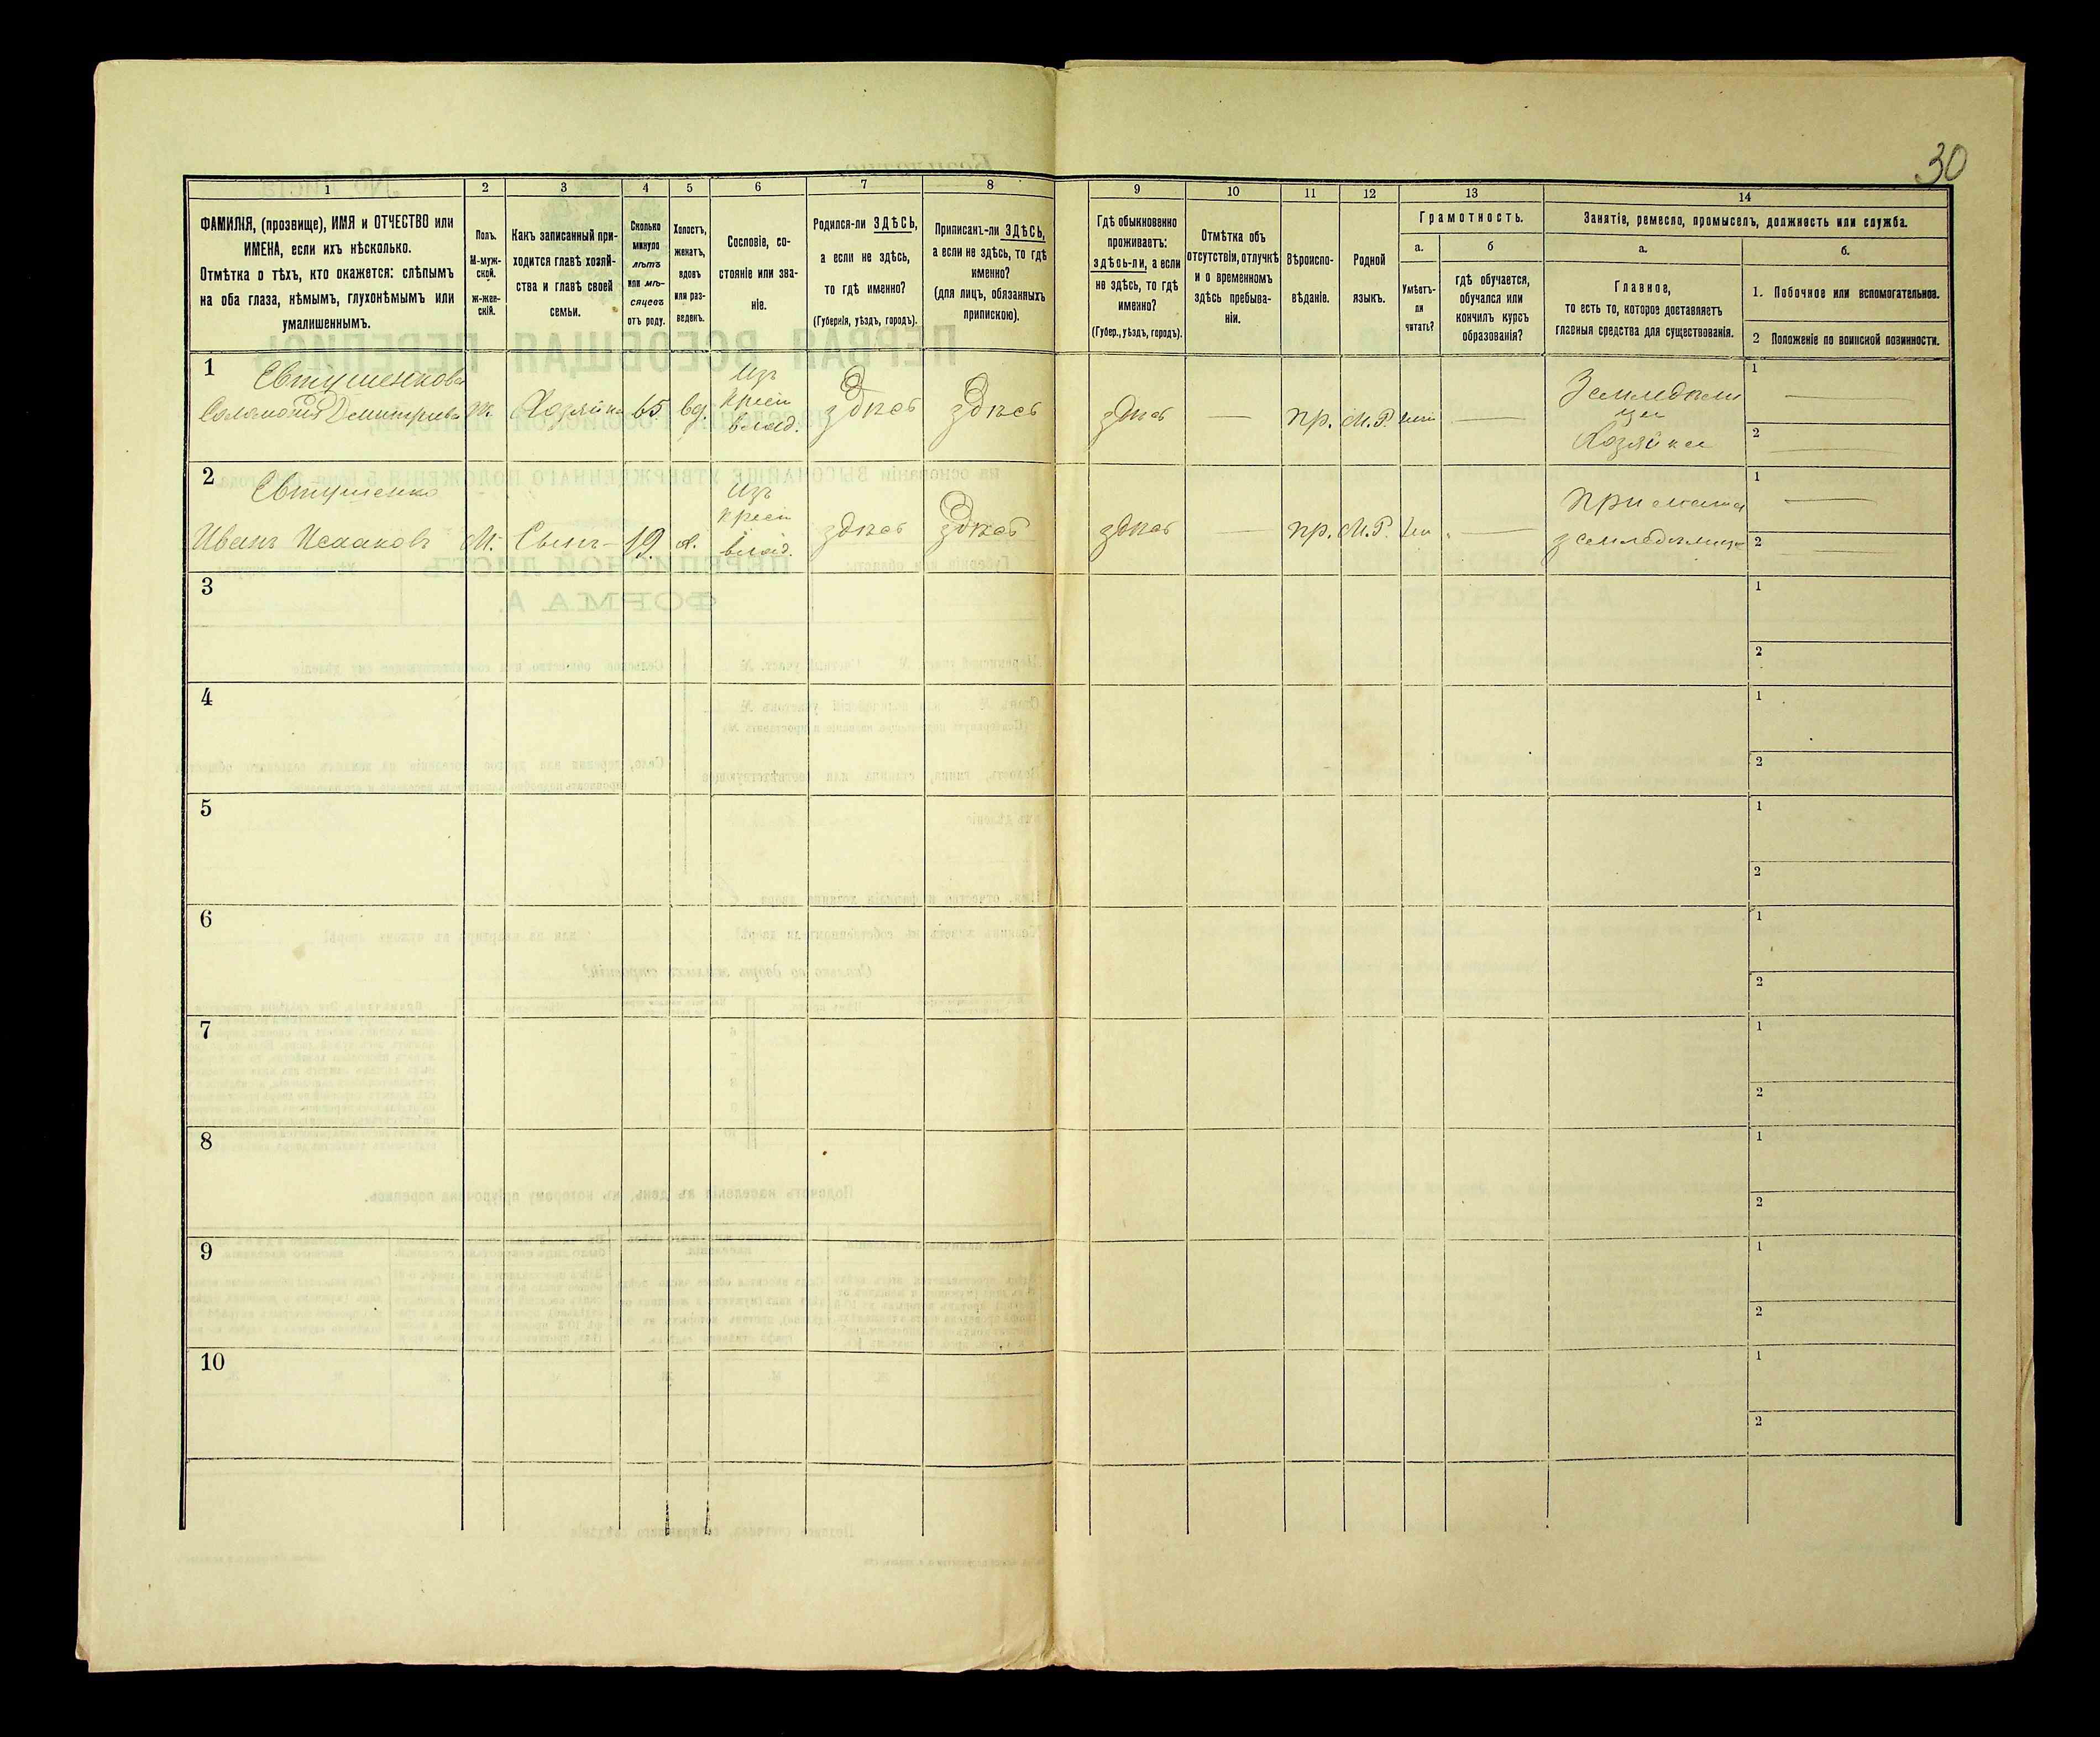 30
1 2 3 4 5 6 7 8 9 10 11 12 13 14
ФАМИЛІЯ, (прозвище), ИМЯ и ОТЧЕСТВО или
ИМЕНА, если ихъ нѣсколько.
Отмѣтка о тѣхъ, кто окажется: слѣпымъ
на оба глаза, нѣмымъ, глухонѣмымъ или
умалишеннымъ.
Полъ.
М-муж-
ской.
ж-жен-
скій.
Какъ записанный при-
ходится главѣ хозяй-
ства и главѣ своей
семьи.
Сколько
минуло
лѣтъ
или мѣ-
сяцевъ
отъ роду.
Холостъ,
женатъ,
вдовъ
или раз-
веденъ.
Сословіе, со-
стояніе или зва-
ніе.
Родился-ли ЗДѢСЬ,
а если не здѣсь,
то гдѣ именно?
(Губернія, уѣздъ, городъ).
Приписанъ-ли ЗДѢСЬ,
а если не здѣсь, то гдѣ
именно?
(для лицъ, обязанныхъ
припискою).
Гдѣ обыкновенно
проживаетъ:
здѣсь-ли, а если
не здѣсь, то гдѣ
именно?
(Губер., уѣздъ, городъ).
Отмѣтка объ
отсутствіи, отлучкѣ
и о временномъ
здѣсь пребыва-
ніи.
Вѣроиспо-
вѣданіе.
Родной
языкъ.
Грамотность.
а.
б
Умѣетъ-
ли
читать?
гдѣ обучается,
обучался или
кончилъ курсъ
образованія?
Занятіе, ремесло, промыселъ, должность или служба.
а.
б.
Главное,
то есть то, которое доставляетъ
главныя средства для существованія.
1. Побочное или вспомогательное.
2 Положеніе по воинской повинности.
1
Евтушенкова
Соломонія Дмитріева
Ж.
Хозяйка
65
вд.
Изъ
крест
влад.
здѣсь
здѣсь
здѣсь
—
пр.
М.Р.
—
Хозяйка
1 —
2 —
2
Евтушенко
Иванъ Исааковъ
М.
Сынъ
19
х.
Изъ
крест
влад.
здѣсь
здѣсь
здѣсь
—
пр.
М.Р.
—
1 —
2 —
3
1
2
4
1
2
5
1
2
6
1
2
7
1
2
8
1
2
9
1
2
10
1
2